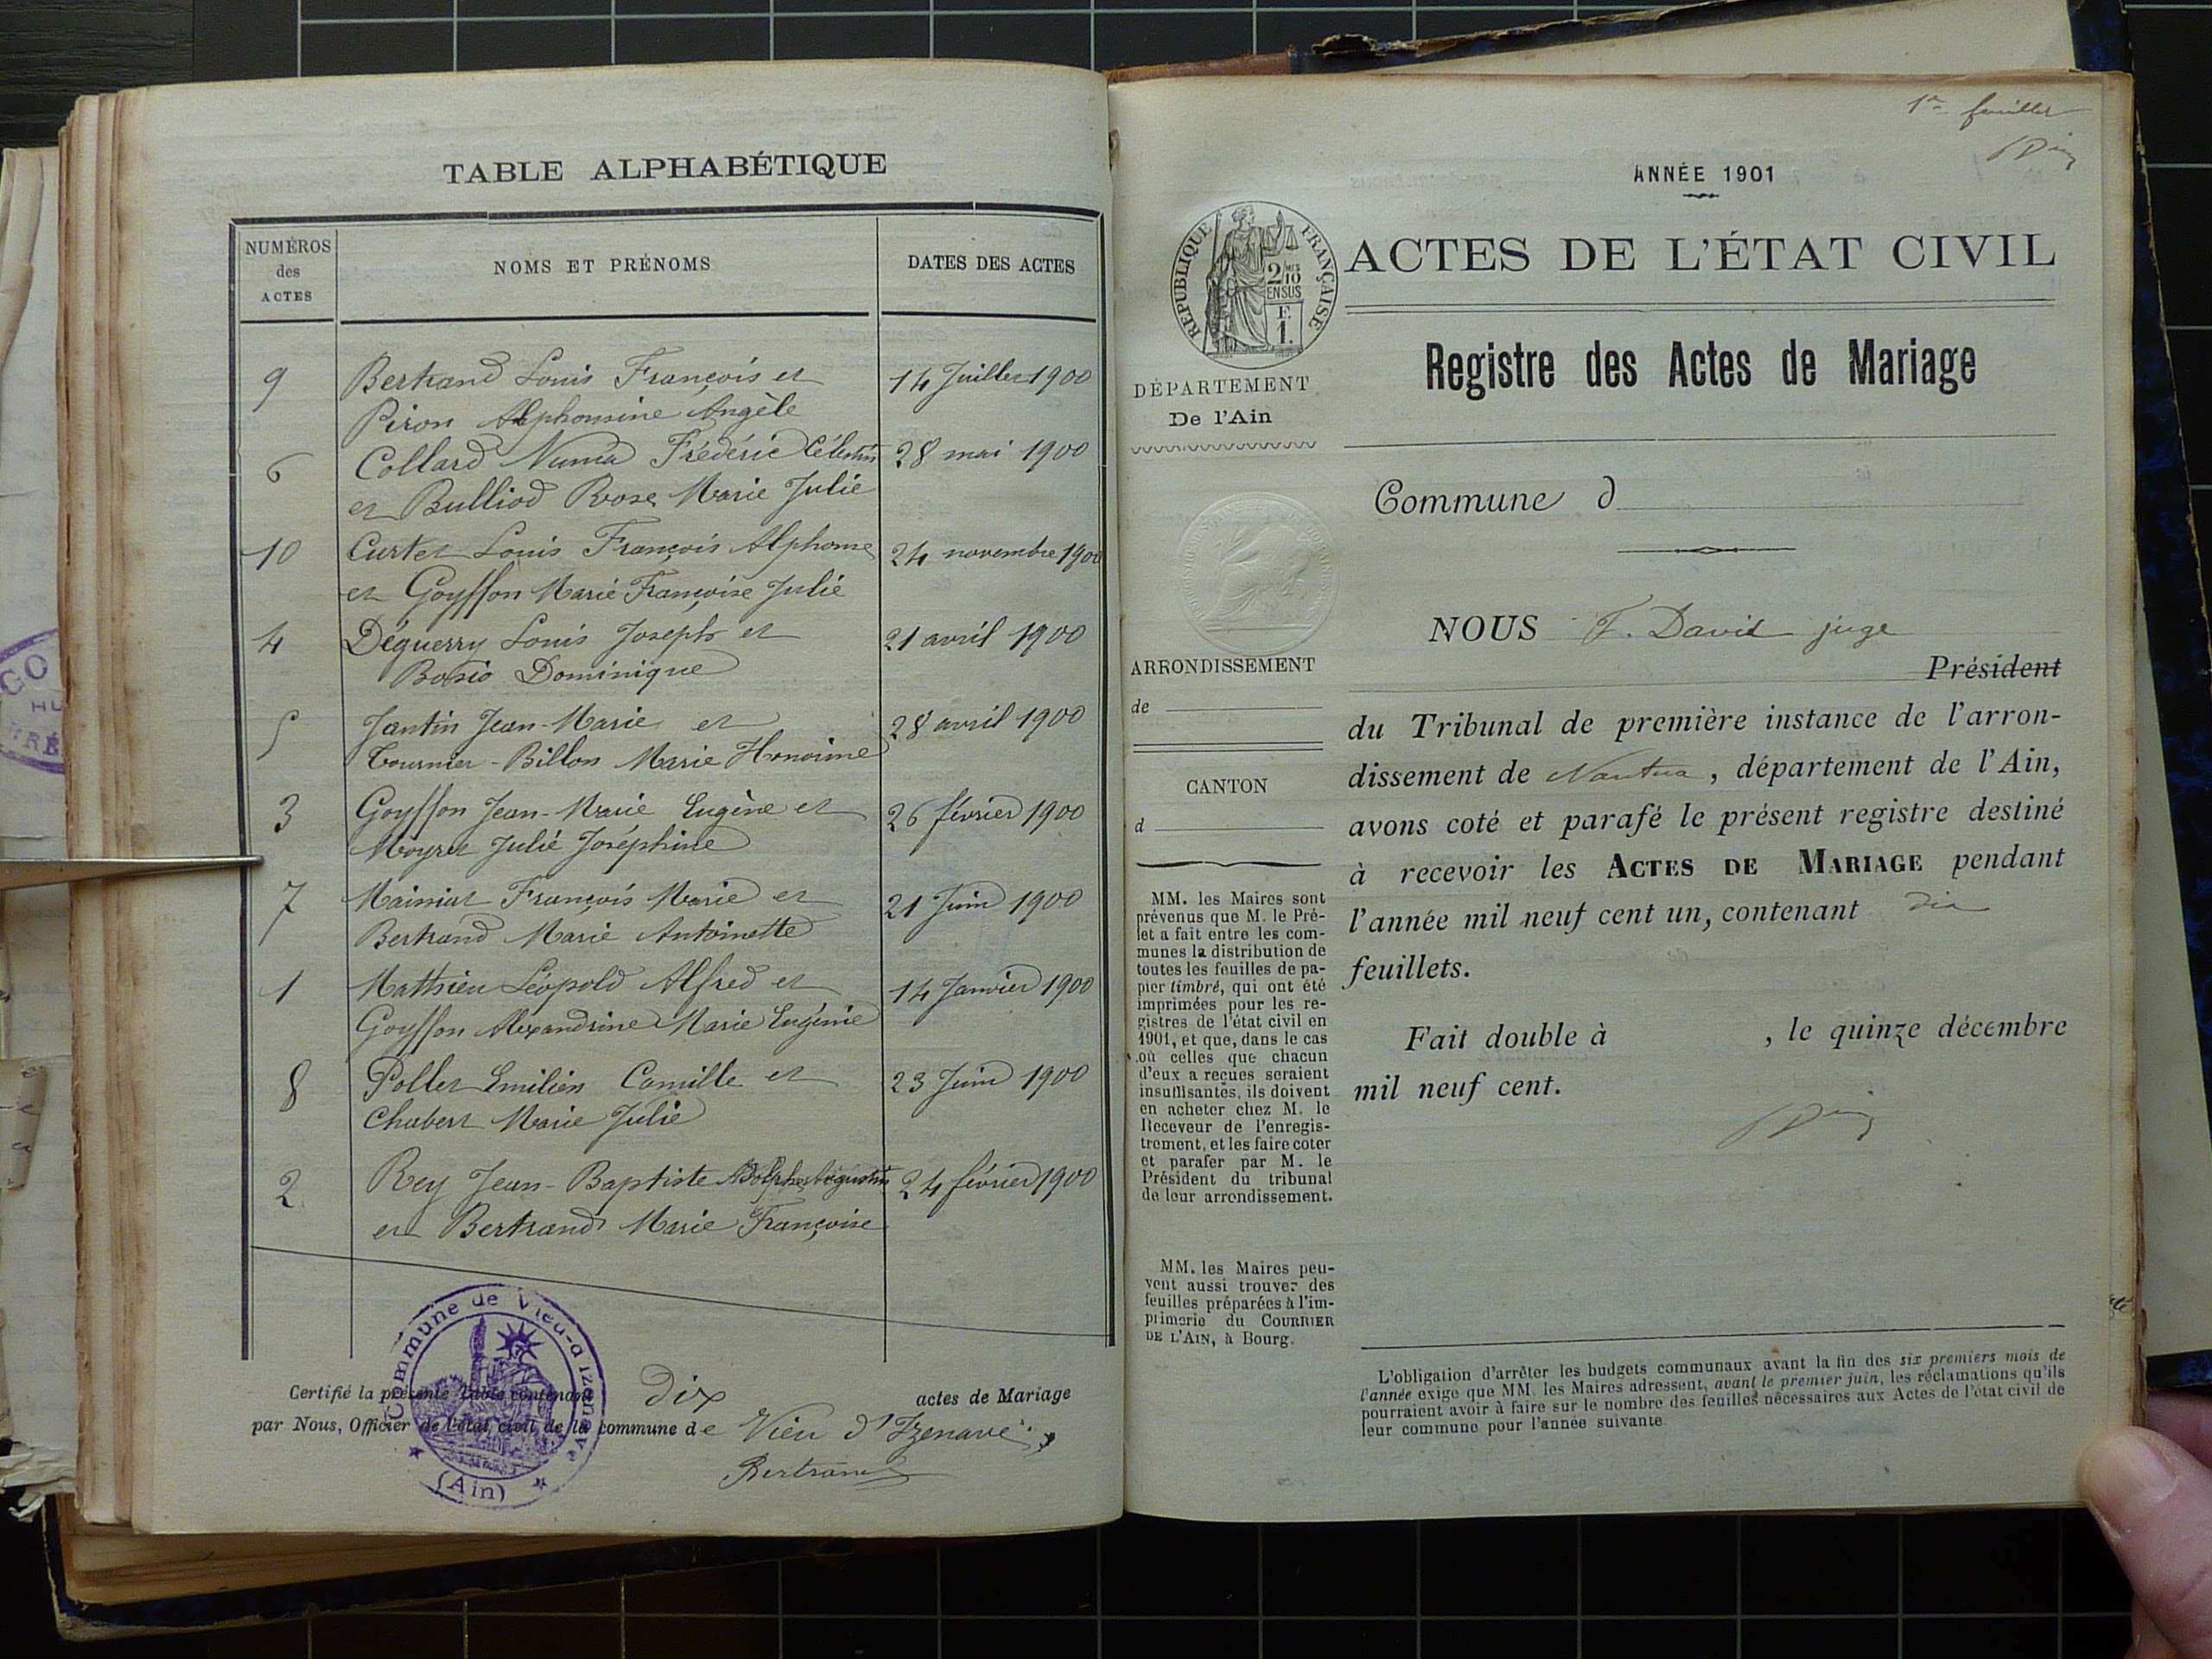 TABLE ALPHABÉTIQUE
NUMÉROS
des
ACTES
NOMS ET PRÉNOMS
DATES DES ACTES
9 Bertrand Louis François et 14 Juillet 1900
Piron Alphonsine Angèle
6 Collard Numa Frédéric Célestin 28 mai 1900
et Bulliod Rose Marie Julie
10 Curtet Louis François Alphonse 24 novembre 1900
et Goyffon Marie Françoise Julie
4 Déguerry Louis Joseph et 21 avril 1900
Bosio Dominique
5 Jantin Jean-Marie et 28 avril 1900
Tournier-Billon Marie Honorine
3 Goyffon Jean-Marie Eugène et 26 février 1900
Moyret Julie Joséphine
7 François Marie et 21 Juin 1900
Bertrand Marie Antoinette
1 Matthieu Léopold Alfred et 14 Janvier 1900
Goyffon Alexandrine Marie Eugénie
8 Pollet Emilien Camille et 23 Juin 1900
Chabert Marie Julie
2 Rey Jean-Baptiste Adolphe Augustin 24 février 1900
et Bertrand Marie Françoise
Commune de Vieu-d'Izenave
(Ain)
Certifié la présente Table contenant dix actes de Mariage
par Nous, Officier de l'état civil de la commune de Vieu d'Izenave
Bertrand
1er feuillet
ANNÉE 1901
RÉPUBLIQUE FRANÇAISE
2/10
EN SUS
F.
1.
ACTES DE L'ÉTAT CIVIL
Registre des Actes de Mariage
DÉPARTEMENT
De l'Ain
Commune d
NOUS F. David juge
Président
ARRONDISSEMENT
de
CANTON
d
du Tribunal de première instance de l'arron-
dissement de Nantua, département de l'Ain,
avons coté et parafé le présent registre destiné
à recevoir les ACTES DE MARIAGE pendant
l'année mil neuf cent un, contenant dix
feuillets.
Fait double à , le quinze décembre
mil neuf cent.
MM. les Maires sont
prévenus que M. le Pré-
fet a fait entre les com-
munes la distribution de
toutes les feuilles de pa-
pier timbré, qui ont été
imprimées pour les re-
gistres de l'état civil en
1901, et que, dans le cas
où celles que chacun
d'eux a reçues seraient
insuffisantes, ils doivent
en acheter chez M. le
Receveur de l'enregis-
trement, et les faire coter
et parafer par M. le
Président du tribunal
de leur arrondissement.
MM. les Maires peu-
vent aussi trouver des
feuilles préparées à l'im-
primerie du COURRIER
DE L'AIN, à Bourg.
L'obligation d'arrêter les budgets communaux avant la fin des six premiers mois de
l'année exige que MM. les Maires adressent, avant le premier juin, les réclamations qu'ils
pourraient avoir à faire sur le nombre des feuilles nécessaires aux Actes de l'état civil de
leur commune pour l'année suivante.